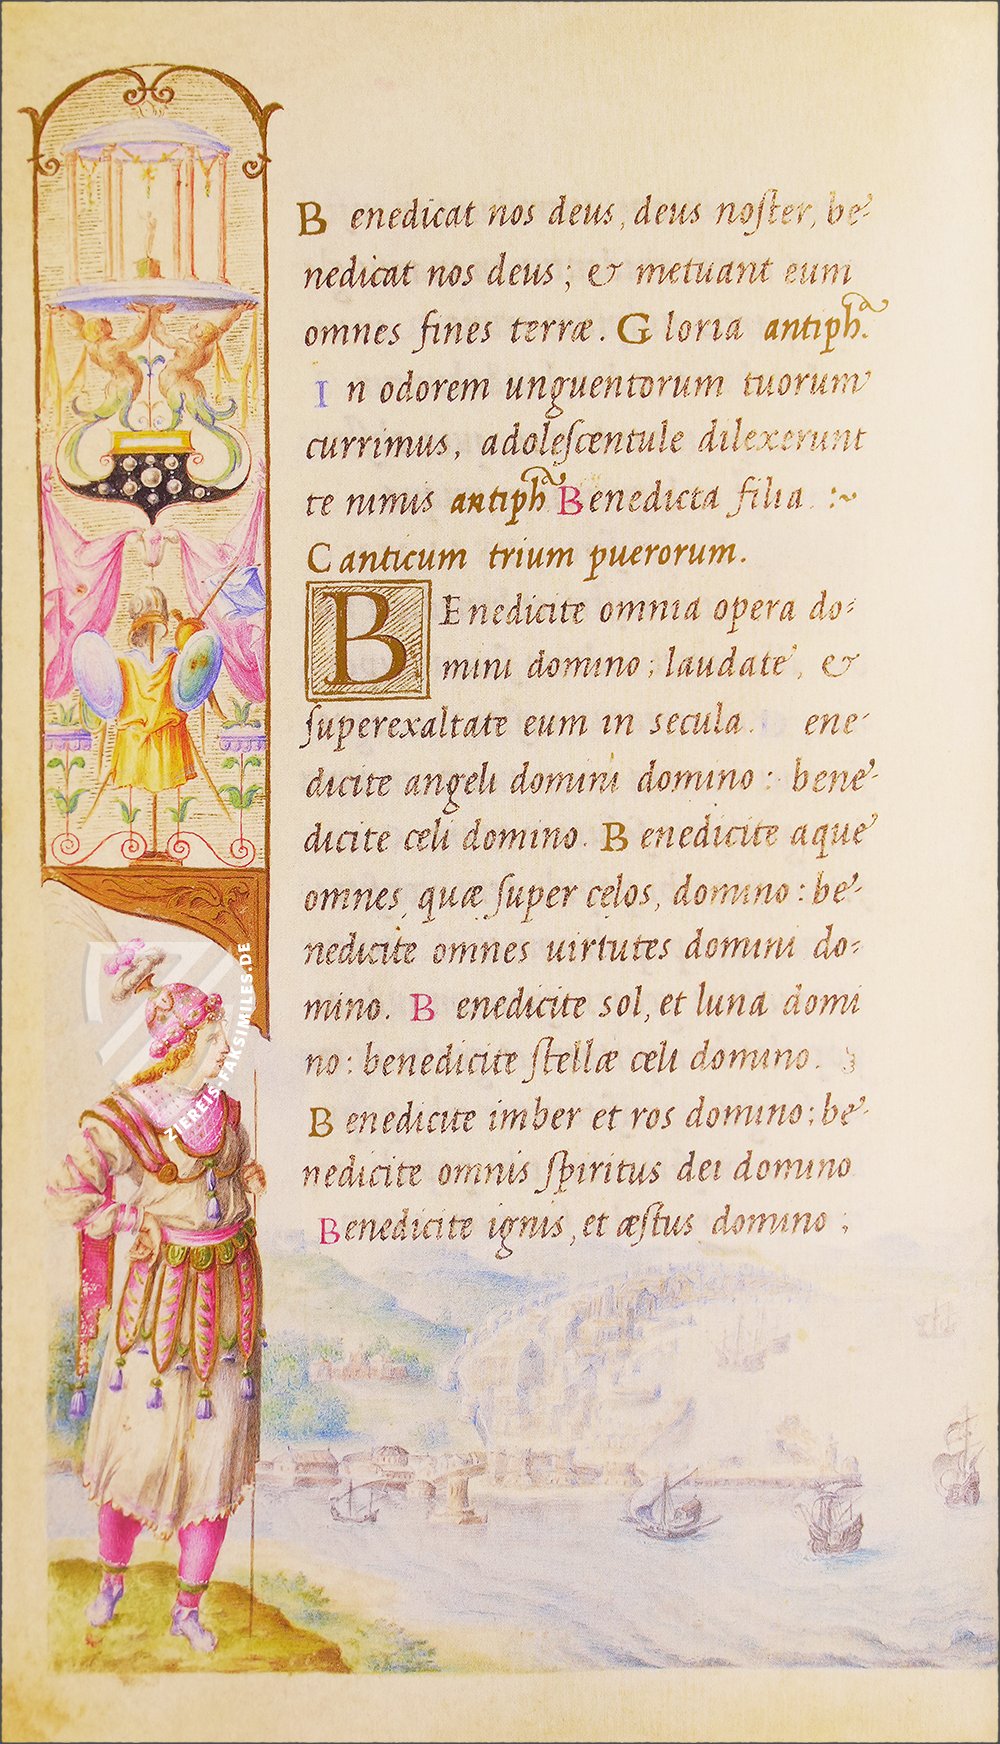 Benedicat nos deus, deus noſter, be-
nedicat nos deus; & metuant eum
omnes fines terræ. Gloria antipha.
In odorem unguentorum tuorum
currimus, adoleſcentule dilexerunt
te nimis antipha Benedicta filia :~
Canticum trium puerorum.
BEnedicite omnia opera do:
mini domino; laudate, &
ſuperexaltate eum in secula. ene-
dicite angeli domini domino: bene-
dicite celi domino. Benedicite aque
omnes, quæ ſuper cęlos, domino: be-
nedicite omnes uirtutes domini do:
mino. Benedicite sol, et luna domi
no: benedicite ſtellæ celi domino.
Benedicite imber et ros domino: be-
nedicite omnis ſpiritus dei domino
Benedicite ignis, et æſtus domino;
ZIEREIS-FAKSIMILES.DE